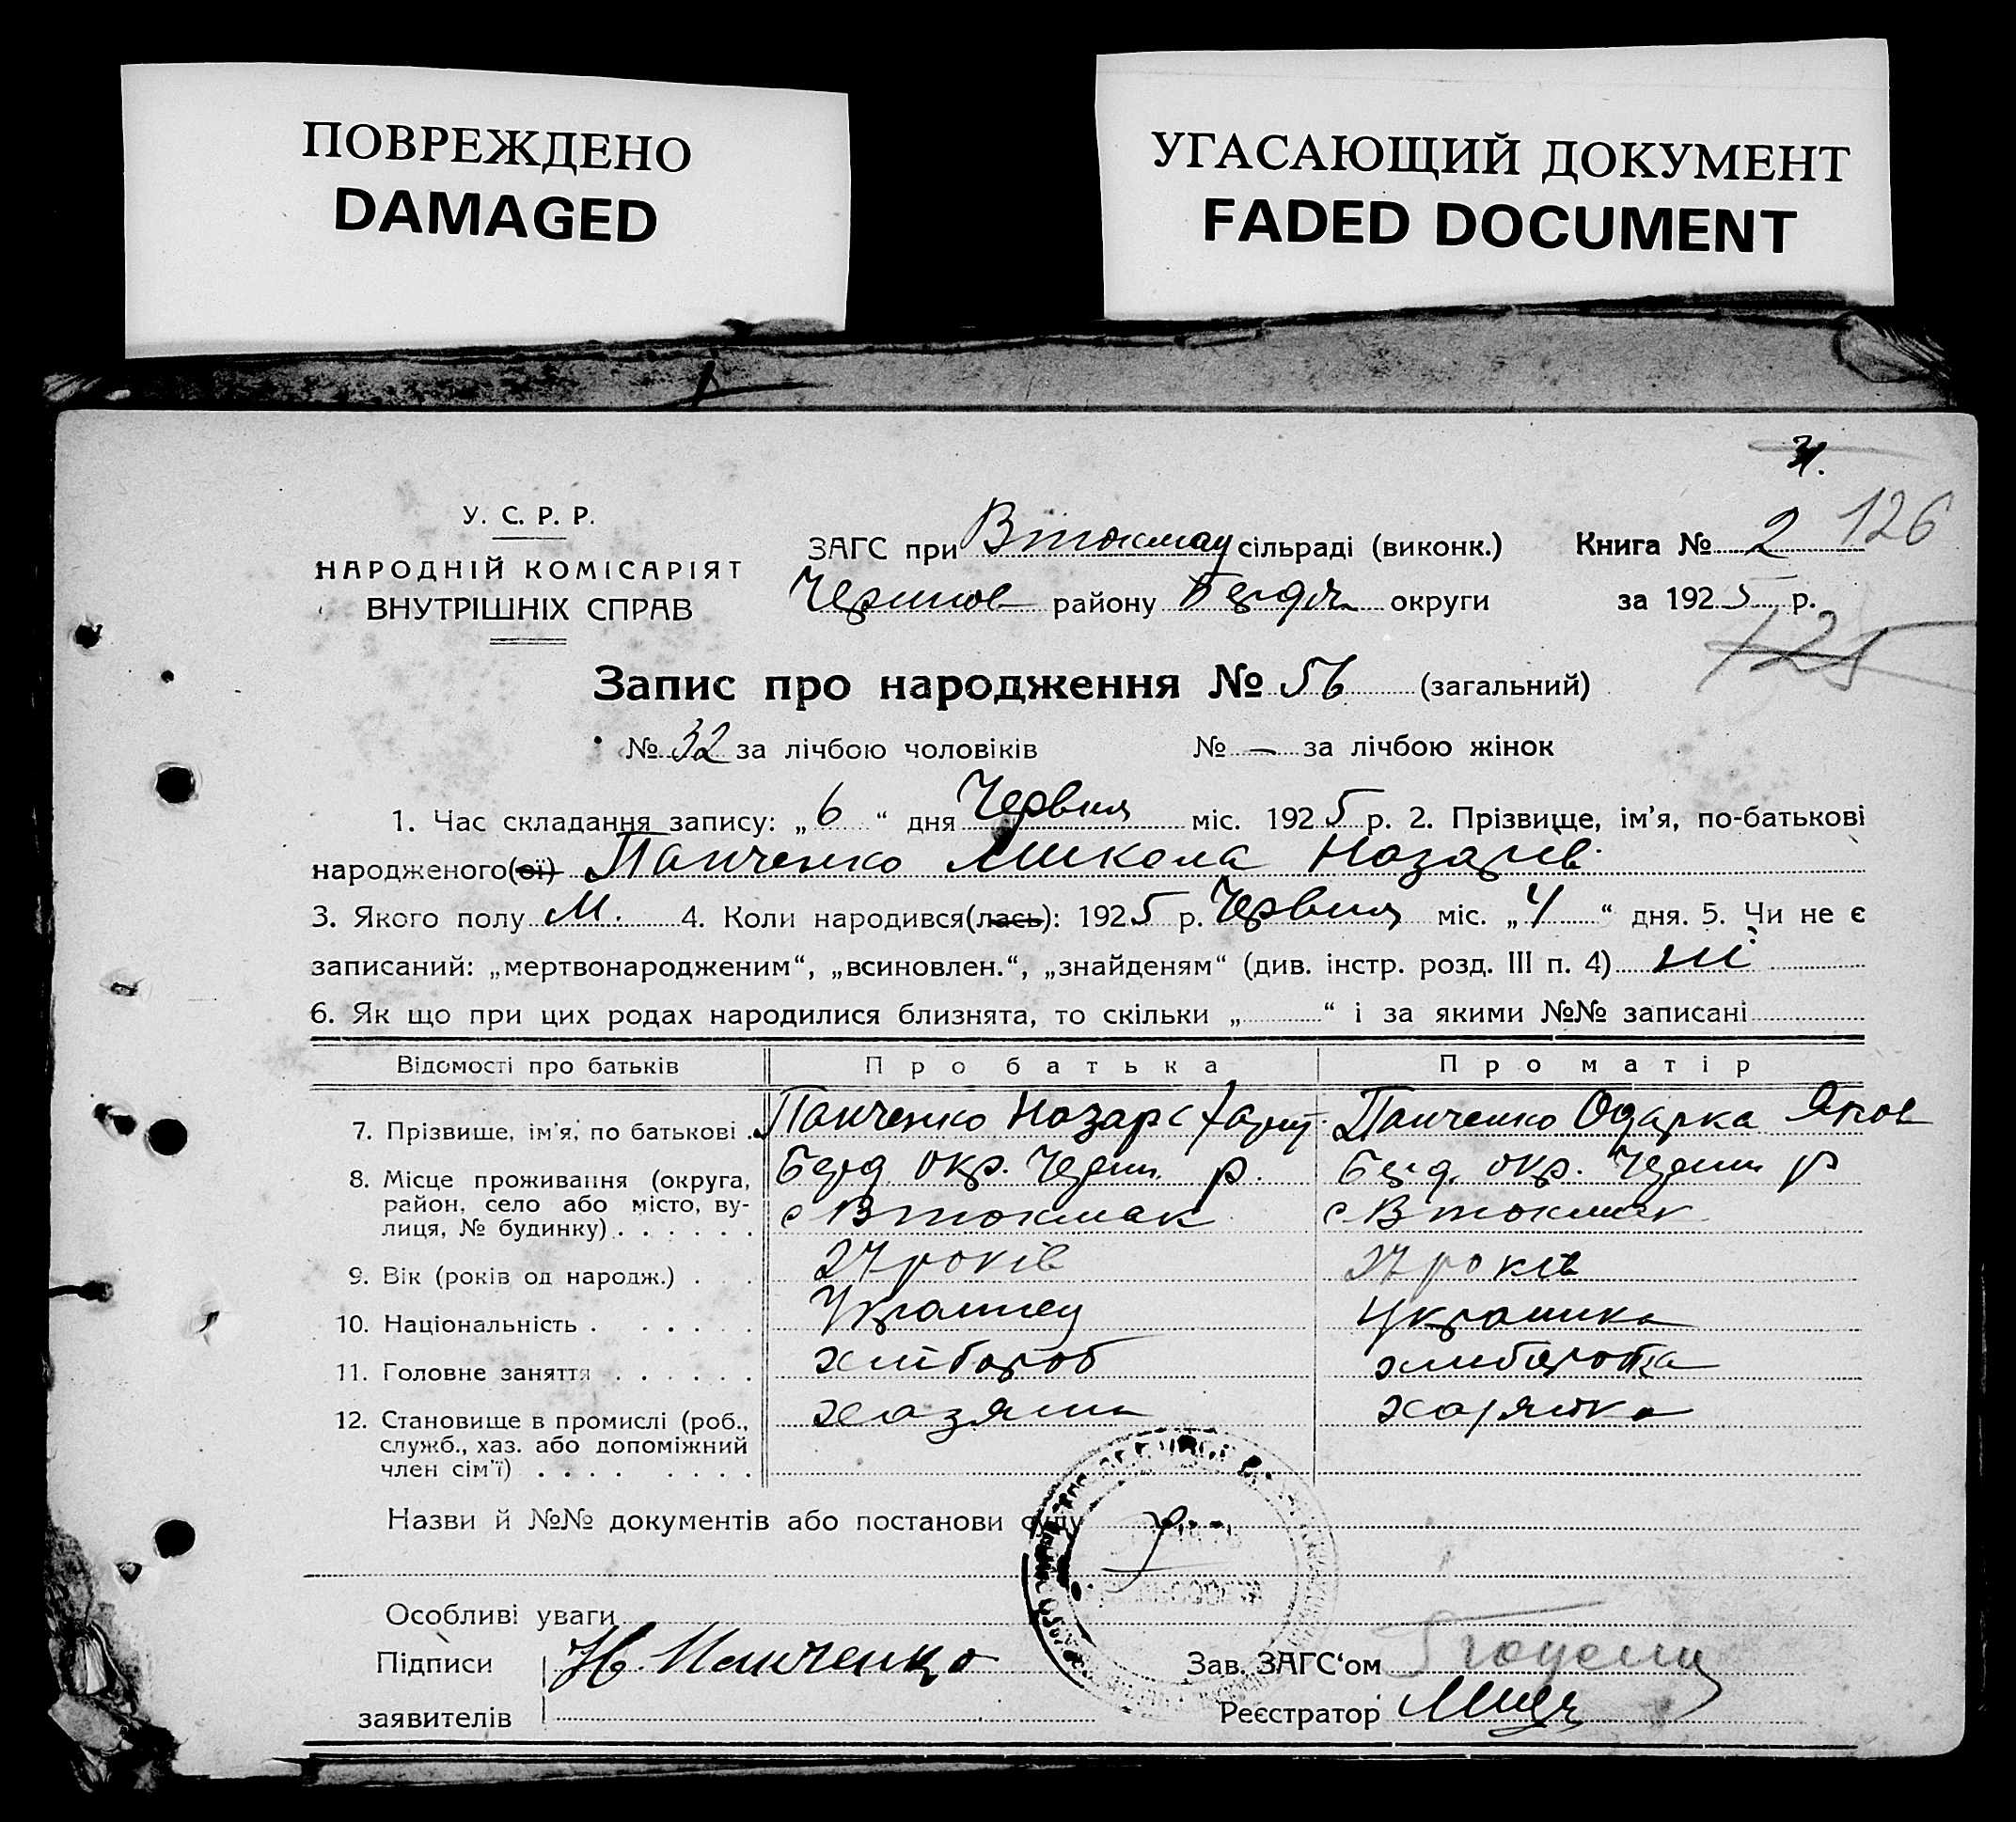 ПОВРЕЖДЕНО
DAMAGED
УГАСАЮЩИЙ ДОКУМЕНТ
FADED DOCUMENT
У. С. Р. Р.
НАРОДНІЙ КОМІСАРІЯТ
ВНУТРІШНІХ СПРАВ
ЗАГС при Втокмац сільраді (виконк.)
Книга № 2 126
району Бердя округи
за 1925 р.
125
Запис про народження № 56 (загальний)
№ 32 за лічбою чоловіків № — за лічбою жінок
1. Час складання запису: „6“ дня Червня міс. 1925 р. 2. Прізвище, ім'я, по-батькові
народженого(ої) Панченко Микола Назарів
3. Якого полу М. 4. Коли народився(лась): 1925 р. Червня міс. „4“ дня. 5. Чи не є
записаний: „мертвонародженим“, „всиновлен.“, „знайденям“ (див. інстр. розд. III п. 4) ні
6. Як що при цих родах народилися близнята, то скільки „ “ і за якими №№ записані
Відомості про батьків Про батька Про матір
7. Прізвище, ім'я, по батькові Панченко Назар Панченко Одарка Яков
8. Місце проживання (округа, Берд. окр. Черниг. р. Берд. окр. Черниг р
район, село або місто, ву- с Втокмак с Втокмак
лиця, № будинку)
9. Вік (років од народж.) 27 років 27 років
10. Національність Украинец Украинка
11. Головне заняття хлібороб хлиборобка
12. Становище в промислі (роб., хазяин хазяйка
служб., хаз. або допоміжний
член сім'ї)
Назви й №№ документів або постанови суду
Особливі уваги
Підписи Н. Панченко
Зав. ЗАГС‘ом
заявителів
Реєстратор